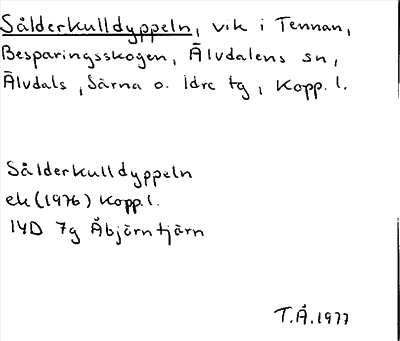 Sålderkulldyppeln, vik i Tennan,
Besparingsskogen, Älvdalens sn,
Älvdals, Särna o. Idre tg, Kopp. l.
Sålderkulldyppeln
ek (1976) Kopp. l.
14D 7g Åbjörntjärn
T.Å. 1977